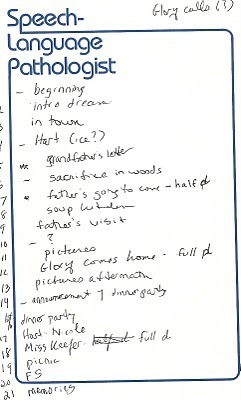 Glory calls (?)
Speech-
Language
Pathologist
- beginning
intro dream
in town
- Hart (ice?)
grandfather's letter
- sacrifice in woods
father's going to come - half pl
soup kitchen
father's visit
- ?
pictures
Glory comes home - full pl
pictures aftermath
- announcement of dinner party
dinner party
Hart-Nicole
Miss Keefer - half pl full pl
picnic
FS
memories
2
3
4
5
6
7
8
9
10
11
12
13
14
17
18
19
20
21